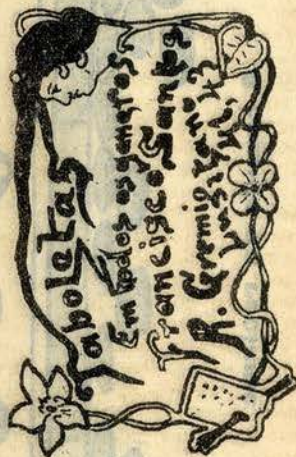 Taboletas
Em todos os generos
Francisco Santos
R. Gremio